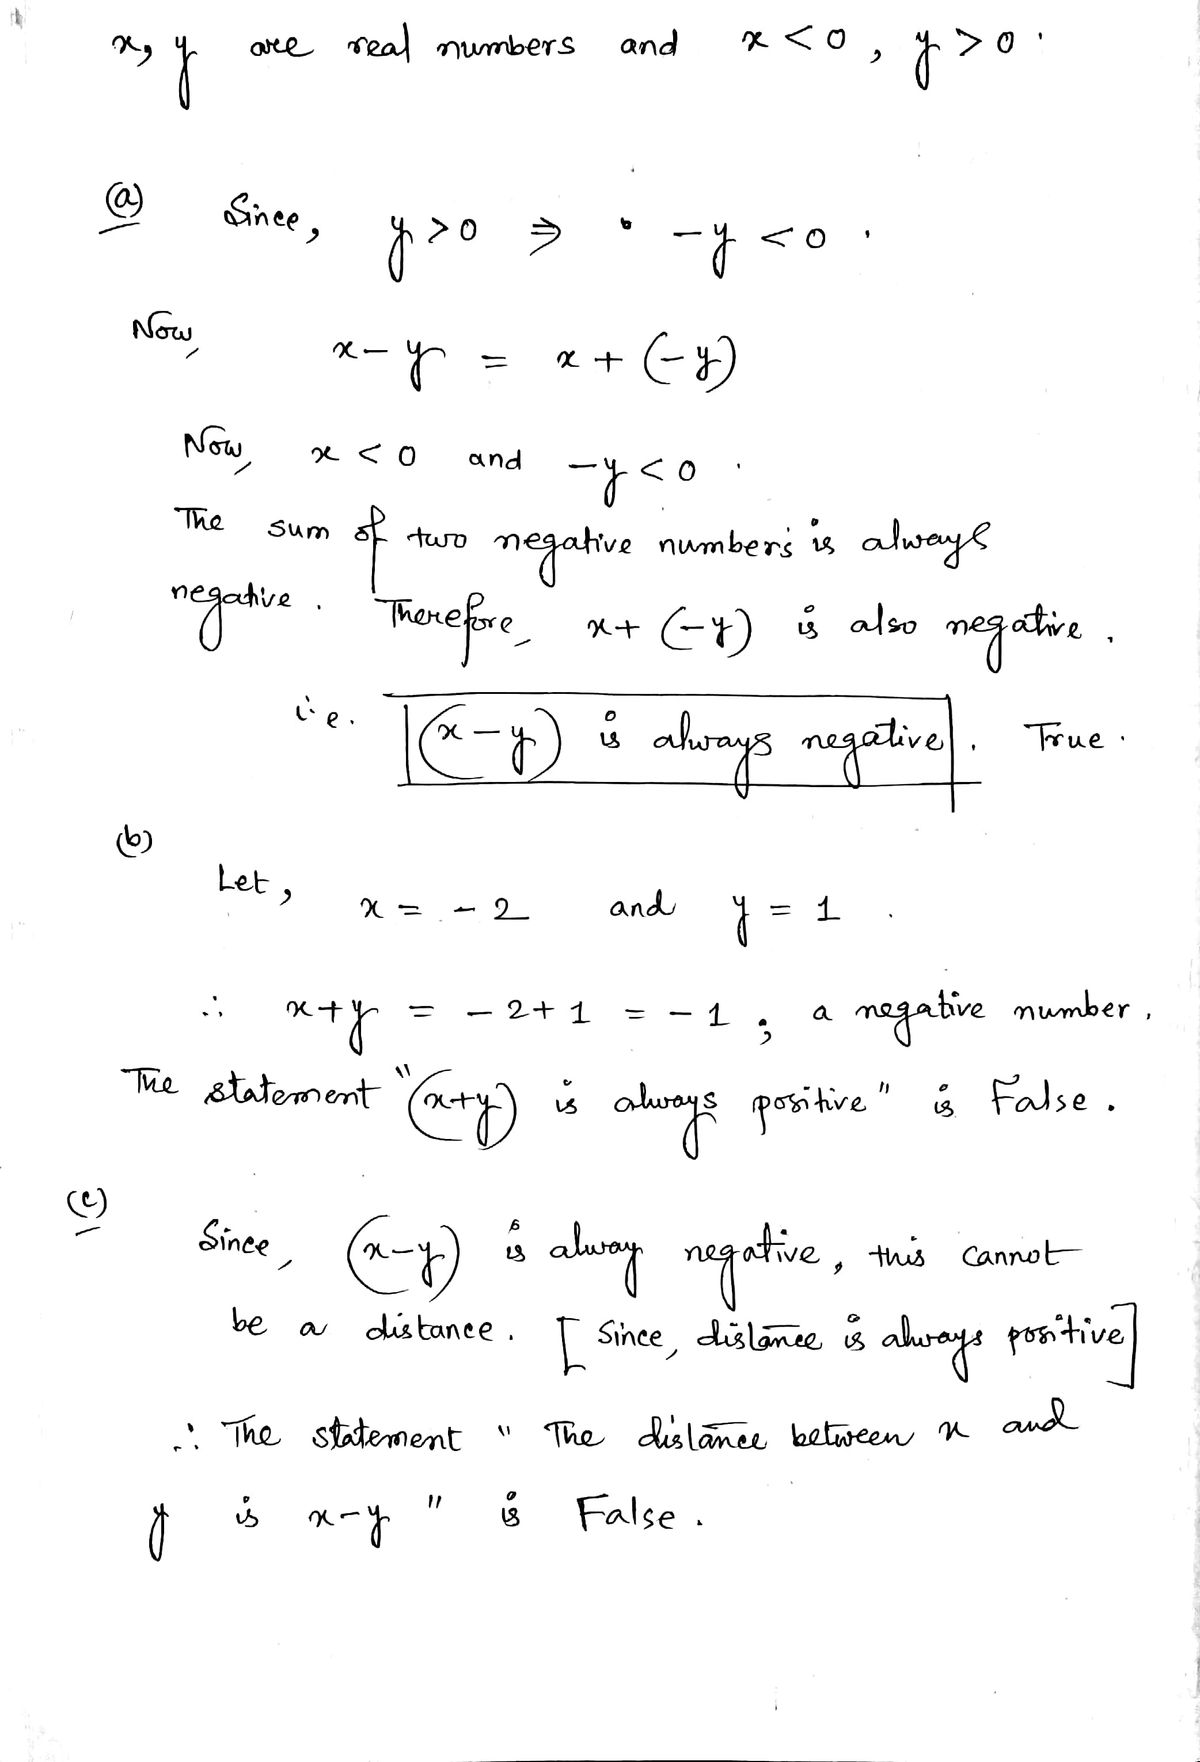 x, y are real numbers and x < 0, y > 0.
(a) Since, y > 0 ⇒ -y < 0.
Now, x - y = x + (-y)
Now, x < 0 and -y < 0.
The sum of two negative numbers is always
negative. Therefore, x + (-y) is also negative.
i.e. (x - y) is always negative. True.
(b)
Let, x = - 2 and y = 1.
∴ x + y = - 2 + 1 = - 1 ; a negative number.
The statement "(x+y) is always positive" is False.
(c)
Since, (x-y) is alway negative, this cannot
be a distance. [Since, distance is always positive]
∴ The statement " The distance between x and
y is x-y " is False.